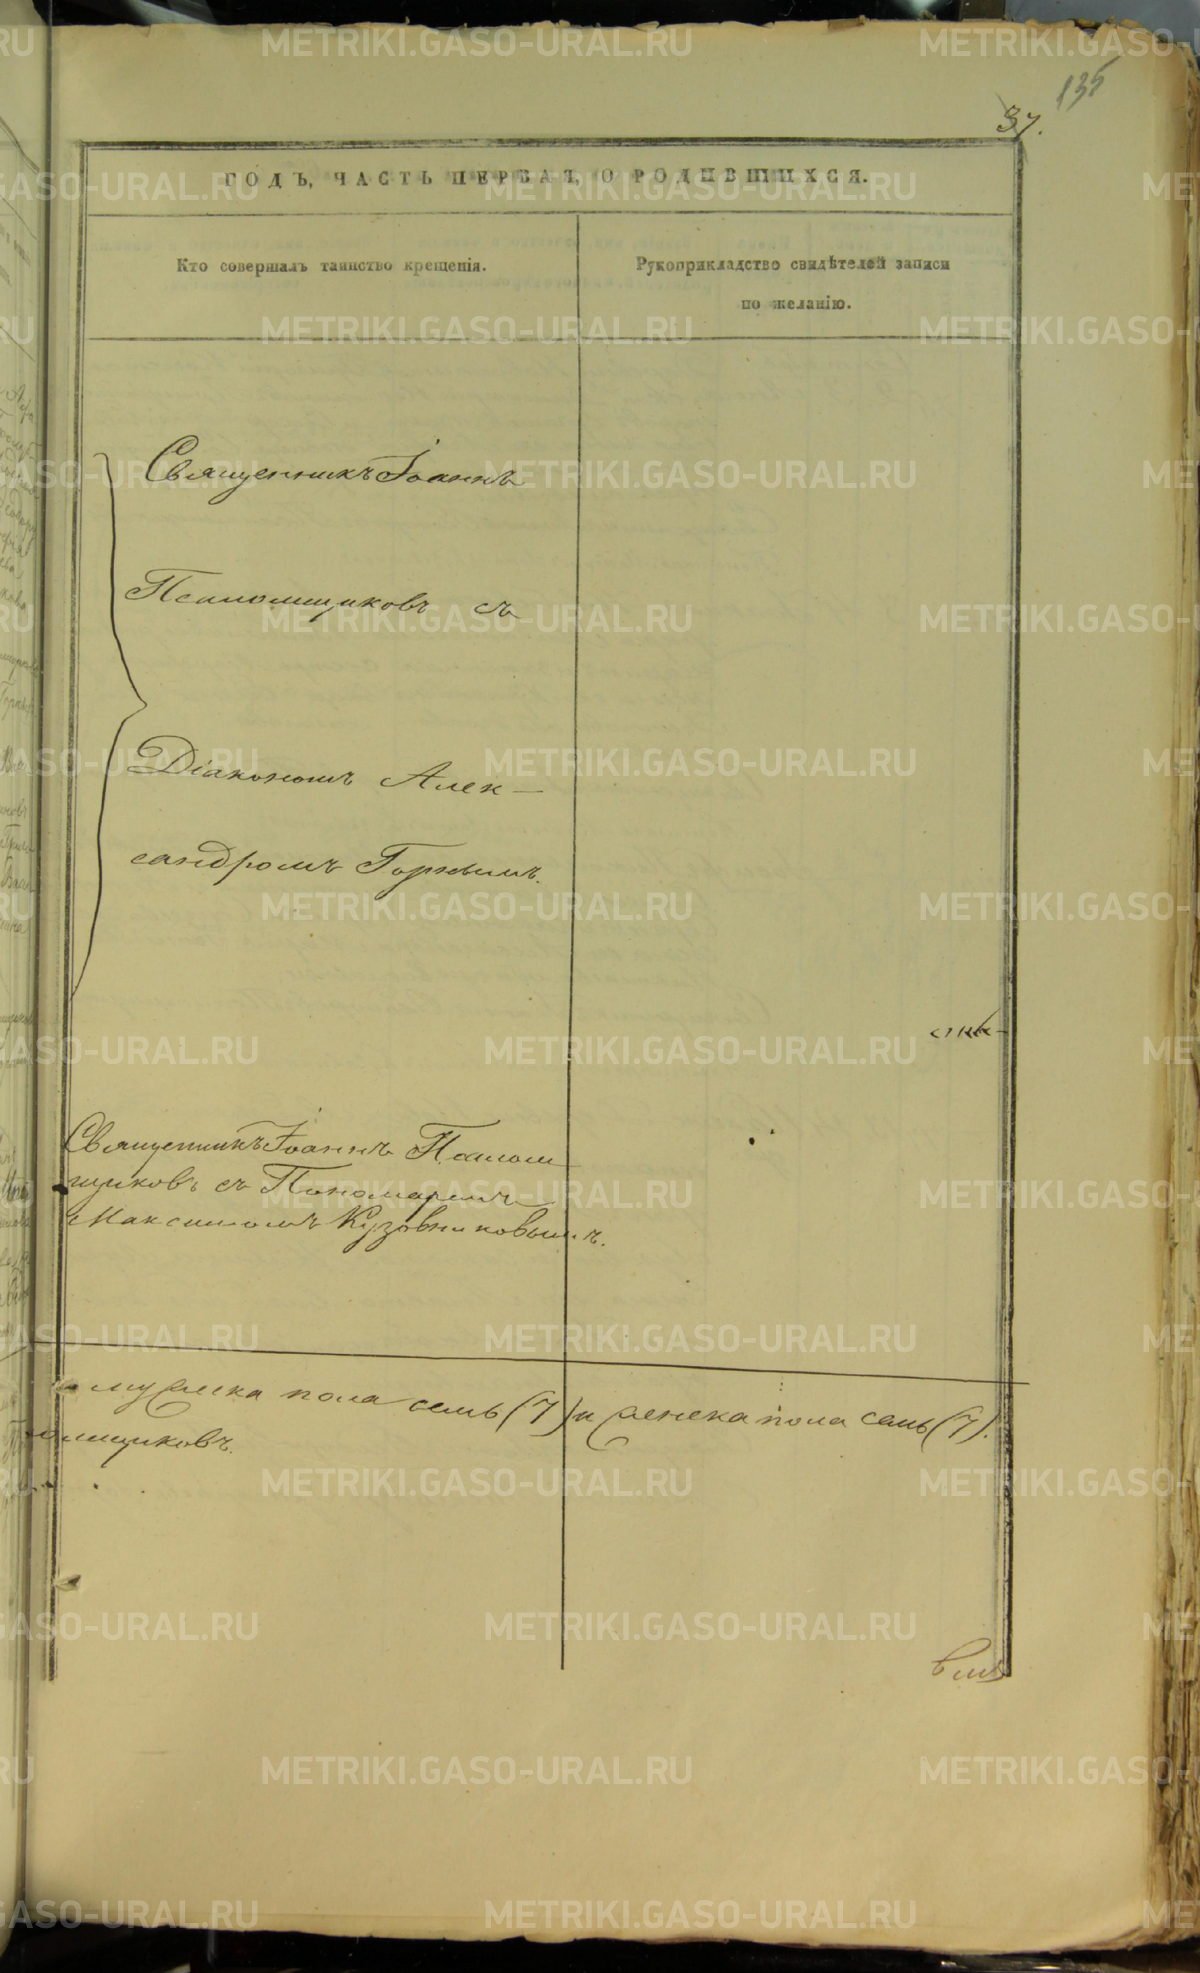 135
37.
ГОДЪ, ЧАСТЬ ПЕРВАЯ, О РОДИВШИХСЯ.
Кто совершалъ таинство крещенія.
Рукоприкладство свидѣтелей записи
по желанію.
Священникъ Іоаннъ
Псаломщиковъ съ
Діакономъ Алек-
сандромъ Горнымъ.
Священникъ Іоаннъ Псалом
щиковъ съ Пономаремъ
Максимомъ Кузовниковымъ.
мужеска пола семь (7) и женска пола семь (7).
омщиковъ.
METRIKI.GASO-URAL.RU